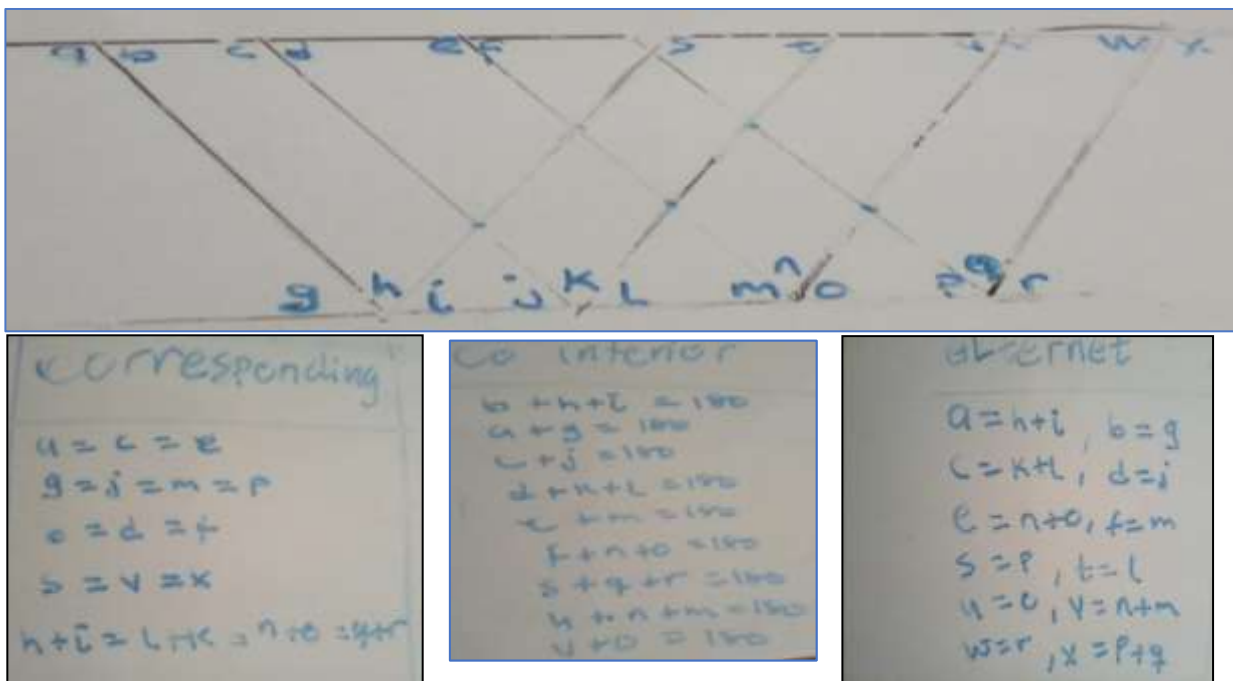 a b c d e f s t w x
g h i j K L m n o p q r
Corresponding
a = c = e
g = j = m = p
= d = f
s = v = x
h+i = L+K = n+o = q+r
Co interior
b + h+i = 180
a + g = 180
c + j = 180
d + k + L = 180
e + m = 180
f + n + o = 180
s + q + r = 180
u + n + m = 180
v + o = 180
alternet
a = h+i , b = g
c = k+L , d = j
e = n+o , f = m
s = p , t = l
u = o , v = n+m
w = r , x = p+q